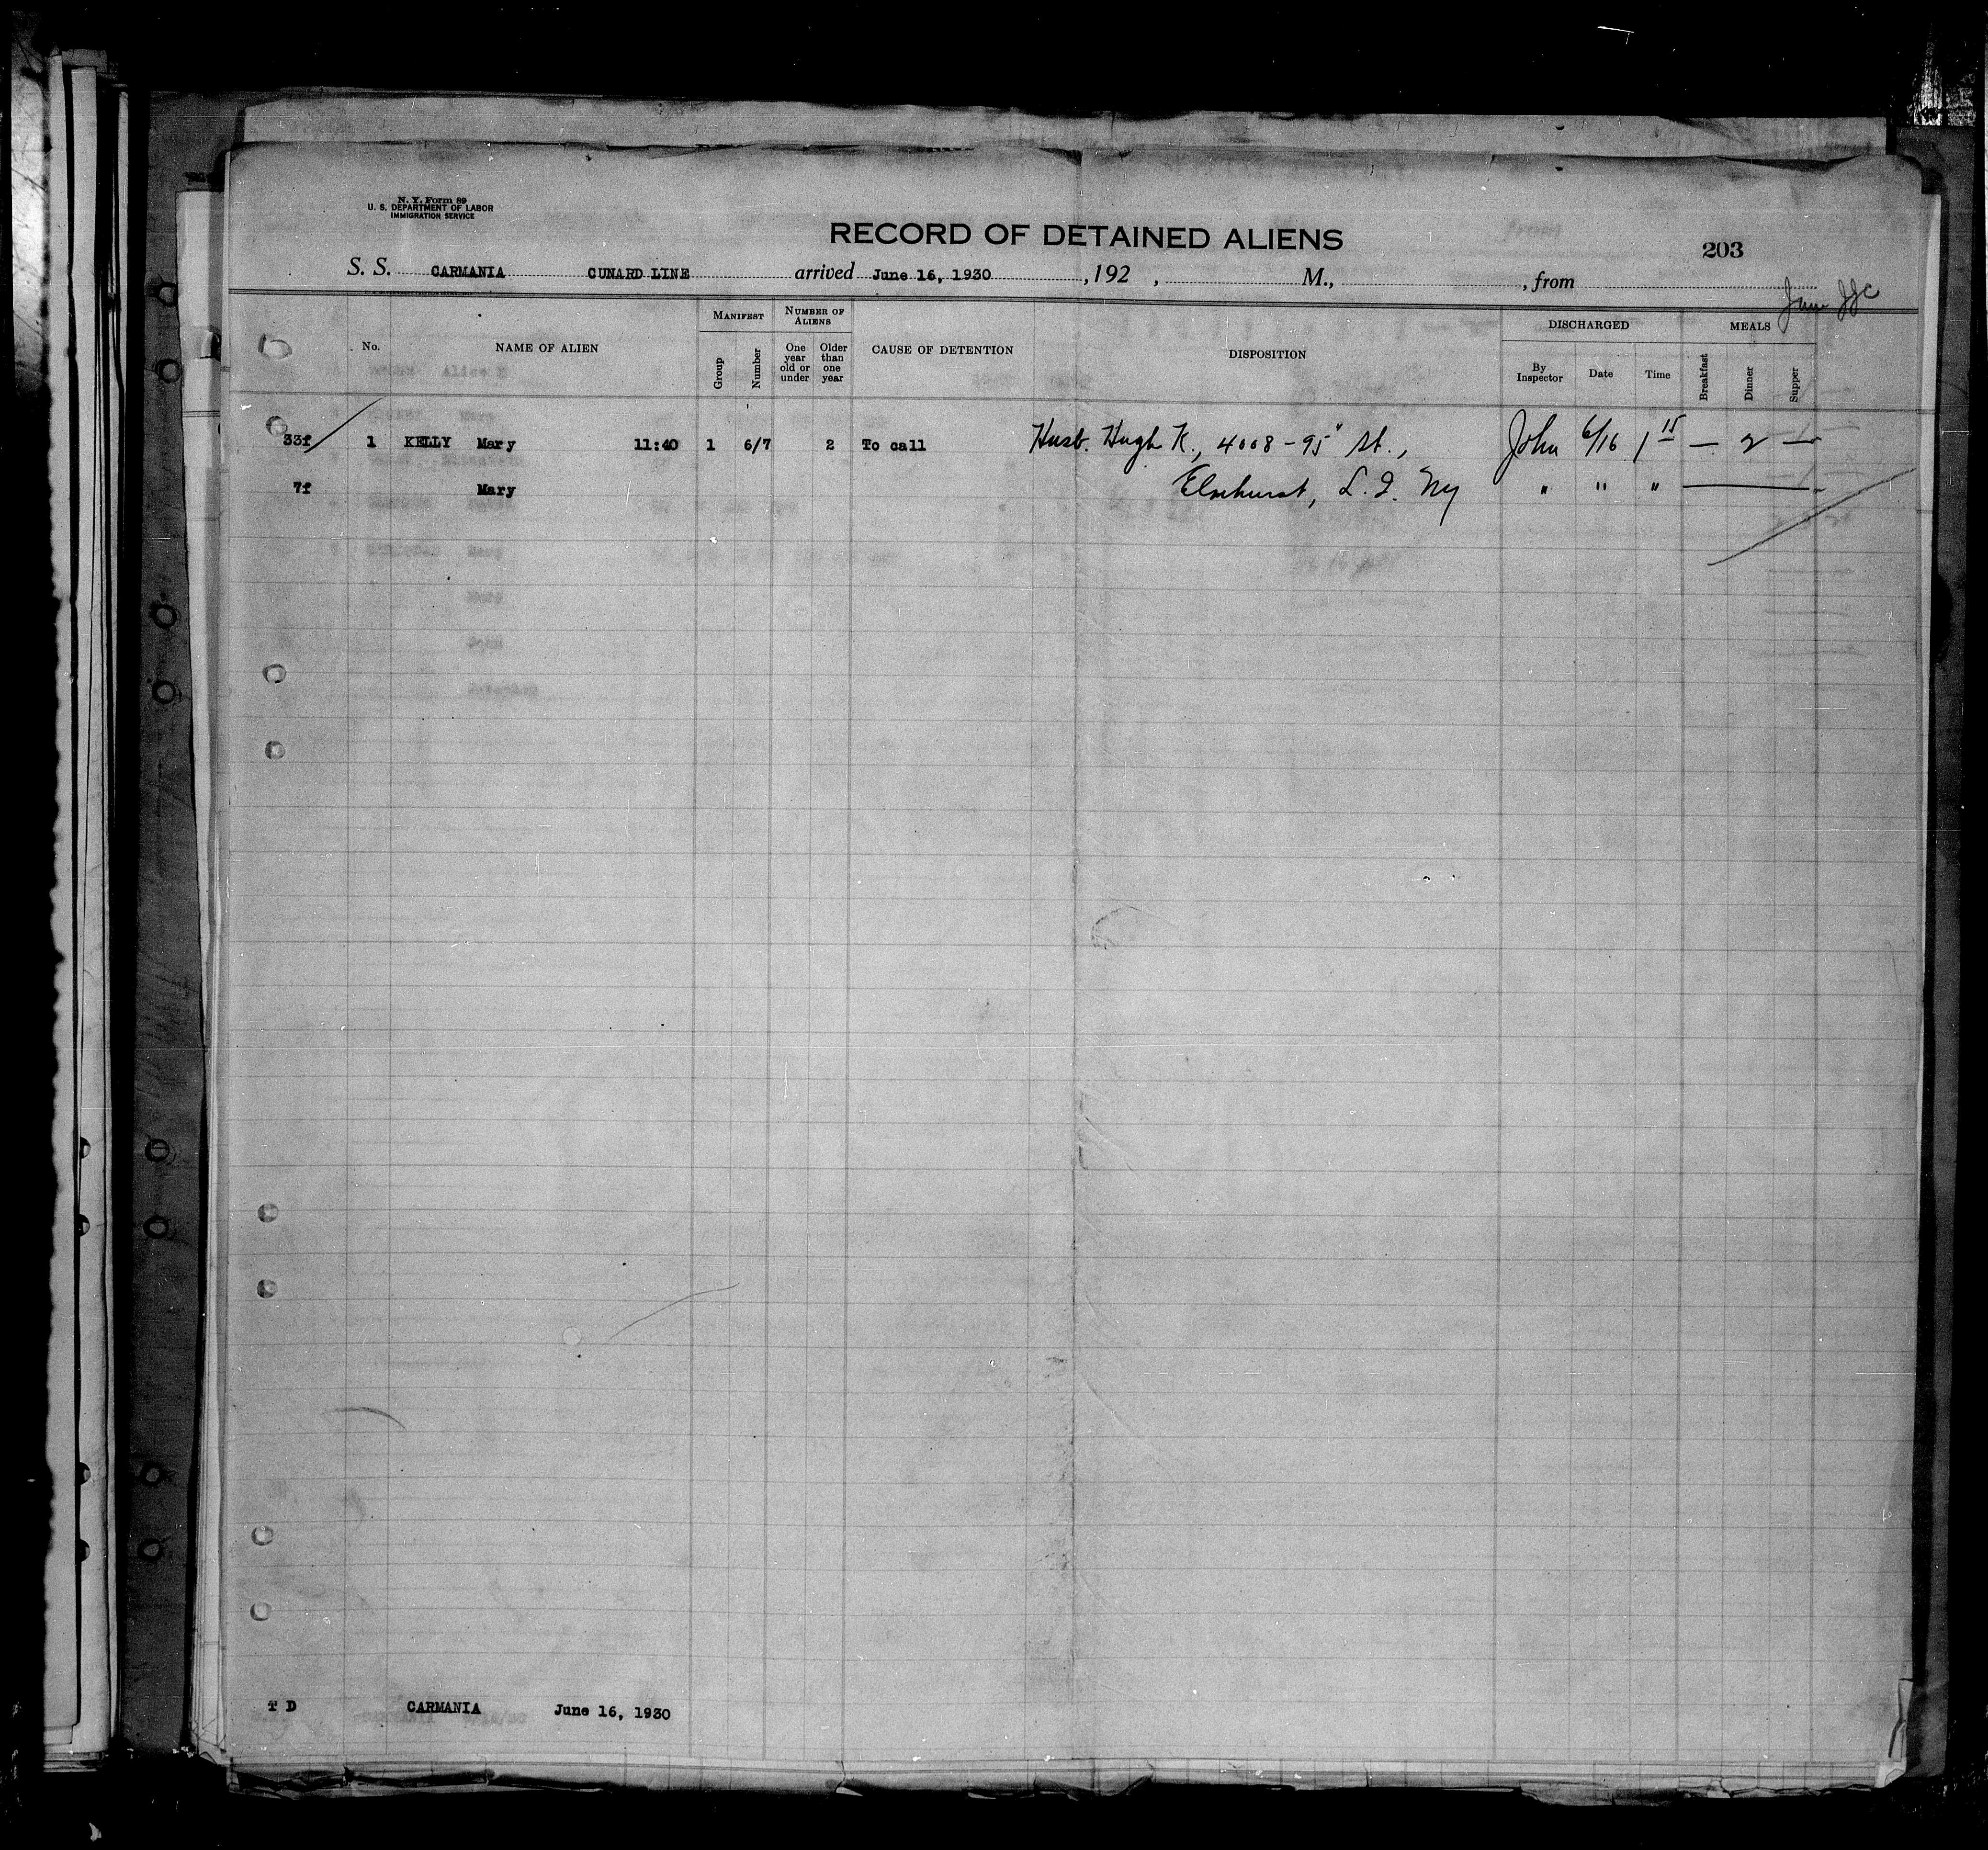 N. Y. Form 89
U. S. DEPARTMENT OF LABOR
IMMIGRATION SERVICE
RECORD OF DETAINED ALIENS
203
S. S. CARMANIA CUNARD LINE arrived June 16, 1930 , 192 , M., , from
No.
NAME OF ALIEN
MANIFEST
Group
Number
NUMBER OF ALIENS
One year old or under
Older than one year
CAUSE OF DETENTION
DISPOSITION
DISCHARGED
By Inspector
Date
Time
MEALS
Breakfast
Dinner
Supper
33f 1 KELLY Mary 11:40 1 6/7 2 To call Husb. Hugh K., 4008 - 95" St., John 6/16 1 15 — 2 —
7f Mary Elmhurst, L. I. NY " " "
T D CARMANIA June 16, 1930